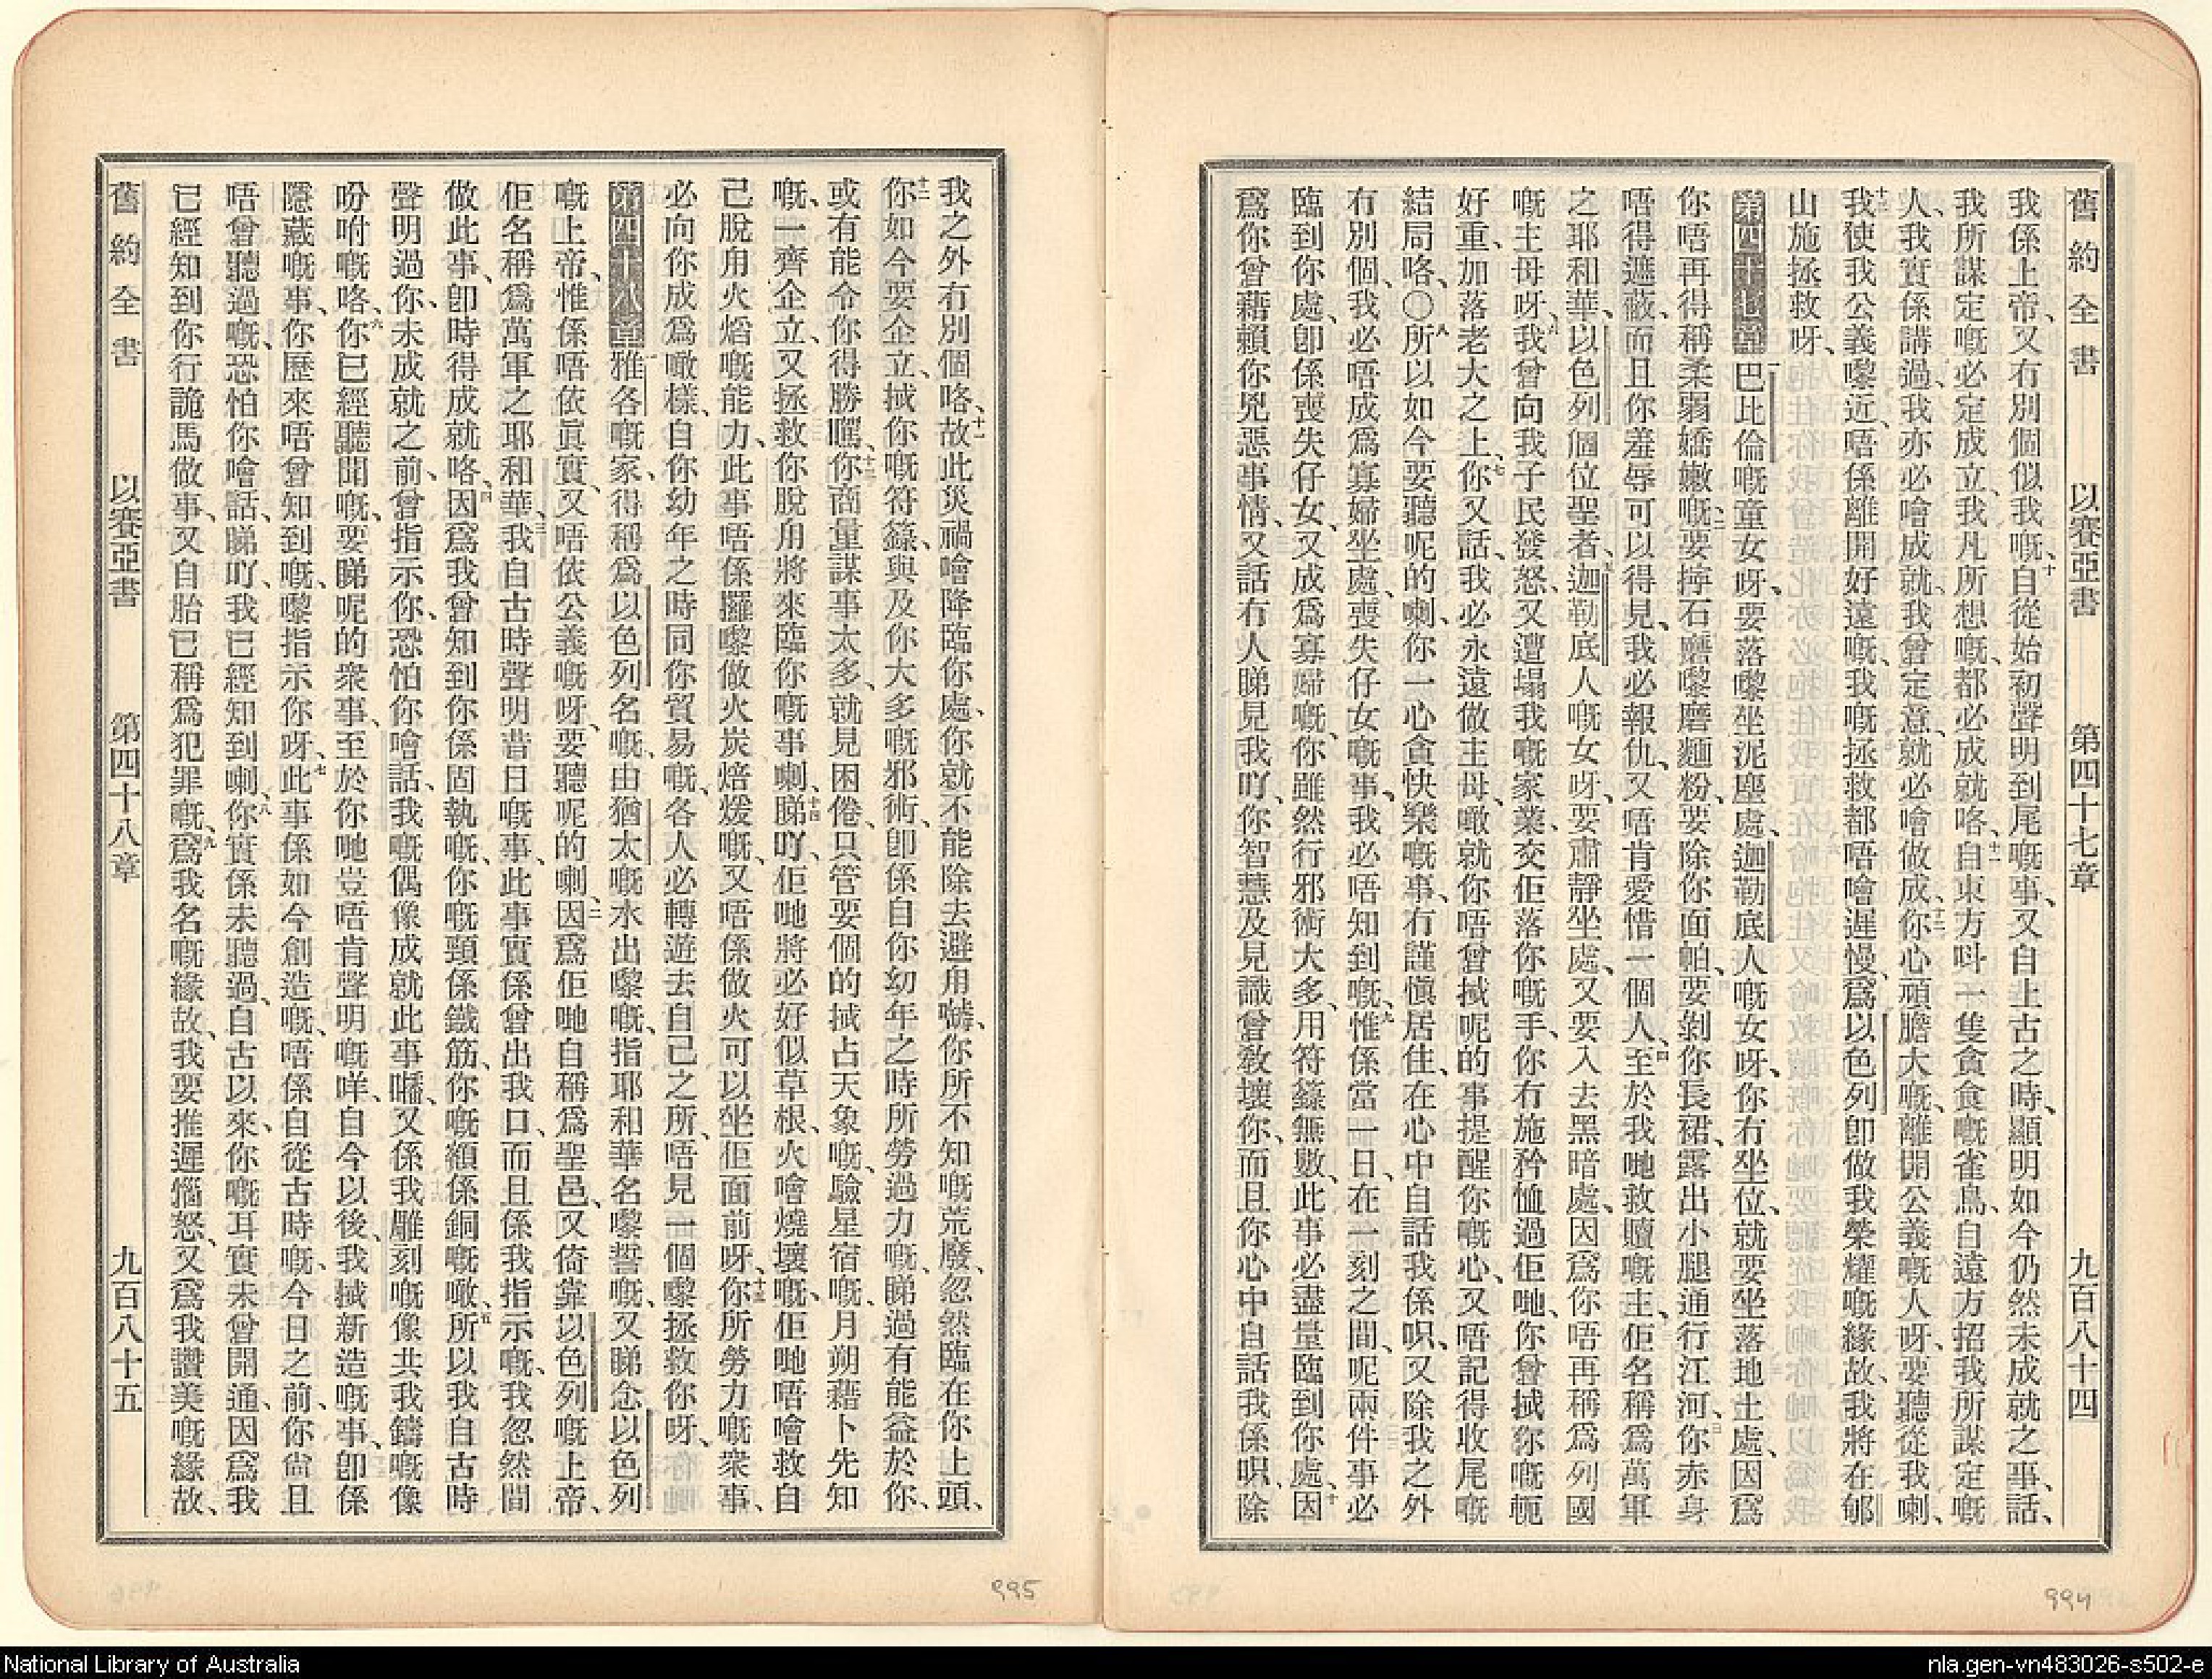 舊約全書 以賽亞書 第四十七章 九百八十四
我係上帝、又有別個似我嘅、十自從始初聲明到尾嘅事、又自上古之時、顯明如今仍然未成就之事、話、
我所謀定嘅必定成立、我凡所想嘅、都必成就咯、十一自東方呌一隻貪食嘅雀鳥、自遠方招我所謀定嘅
人、我實係講過、我亦必噲成就、我曾定意、就必噲做成、十二你心頑膽大嘅、離開公義嘅人呀、要聽從我喇、
十三我使我公義嚟近、唔係離開好遠嘅、我嘅拯救都唔噲遲慢、爲以色列卽做我榮耀嘅緣故、我將在郇
山施拯救呀、
第四十七章 一巴比倫嘅童女呀、要落嚟坐泥塵處、迦勒底人嘅女呀、你冇坐位、就要坐落地土處、因爲
你唔再得稱柔弱嬌嫩嘅、二要揼石磨嚟磨麵粉、要除你面帕、要剝你長裙、露出小腿通行江河、三你赤身
唔得遮蔽、而且你羞辱可以得見、我必報仇、又唔肯愛惜一個人、四至於我哋救贖嘅主、佢名稱爲萬軍
之耶和華、以色列個位聖者、五迦勒底人嘅女呀、要肅靜坐處、又要入去黑暗處、因爲你唔再稱爲列國
嘅主母呀、六我曾向我子民發怒、又遭塌我嘅家業、交佢落你嘅手、你冇施矜恤過佢哋、你曾搣你嘅軛
好重、加落老大之上、七你又話、我必永遠做主母、噉就你唔曾搣呢的事提醒你嘅心、又唔記得收尾嘅
結局咯、〇八所以如今要聽呢的喇、你一心貪快樂嘅事、冇謹愼居住、在心中自話我係呮、又除我之外
冇別個、我必唔成爲寡婦坐處、喪失仔女嘅事、我必唔知到嘅、九惟係當一日、在一刻之間、呢兩件事必
臨到你處、卽係喪失仔女、又成爲寡婦嘅、你雖然行邪術大多、用符籙無數、此事必盡量臨到你處、十因
爲你曾藉賴你兇惡事情、又話冇人睇見我吖、你智慧及見識曾敎壞你、而且你心中自話我係呮、除
我之外冇別個咯、十一故此災禍噲降臨你處、你就不能除去避甪嘅、你所不知嘅荒廢、忽然臨在你上頭、
十二你如今要企立、搣你嘅符籙、與及你大多嘅邪術、卽係自你幼年之時所勞過力嘅、睇過有能益於你、
或有能令你得勝嗎、十三你商量謀事太多、就見困倦、只管要個的搣占天象嘅、驗星宿嘅、月朔藉卜先知
嘅、一齊企立、又拯救你脫甪將來臨你嘅事喇、十四睇吖、佢哋將必好似草根、火噲燒壞嘅、佢哋唔噲救自
己脫甪火熖嘅能力、此事唔係攞嚟做火炭焙煖嘅、又唔係做火可以坐佢面前呀、十五你所勞力嘅衆事、
必向你成爲噉樣、自你幼年之時同你貿易嘅、各人必轉遊去自己之所、唔見一個嚟拯救你呀、
第四十八章 一雅各嘅家、得稱爲以色列名嘅、由猶太嘅水出嚟嘅、指耶和華名嚟誓嘅、又睇念以色列
嘅上帝、惟係唔依眞實、又唔依公義嘅呀、要聽呢的喇、二因爲佢哋自稱爲聖邑、又倚靠以色列嘅上帝、
佢名稱爲萬軍之耶和華、三我自古時聲明昔日嘅事、此事實係曾出我口、而且係我指示嘅、我忽然間
做此事、卽時得成就咯、四因爲我曾知到你係固執嘅、你嘅頸係鐵筋、你嘅額係銅嘅噉、五所以我自古時
聲明過你、未成就之前、曾指示你、恐怕你噲話、我嘅偶像成就此事囉、又係我雕刻嘅像共我鑄嘅像
吩咐嘅咯、六你已經聽聞嘅、要睇呢的衆事、至於你哋豈唔肯聲明嘅咩、自今以後、我搣新造嘅事、卽係
隱藏嘅事、你歷來唔曾知到嘅、嚟指示你呀、七此事係如今創造嘅、唔係自從古時嘅、今日之前、你尙且
唔曾聽過嘅、恐怕你噲話、睇吖、我已經知到喇、八你實係未聽過、自古以來、你嘅耳實未曾開通、因爲我
已經知到你行詭馬做事、又自胎已稱爲犯罪嘅、九爲我名嘅緣故、我要推遲惱怒、又爲我讚美嘅緣故、
舊約全書 以賽亞書 第四十八章 九百八十五
994
995
National Library of Australia
nla.gen-vn483026-s502-e